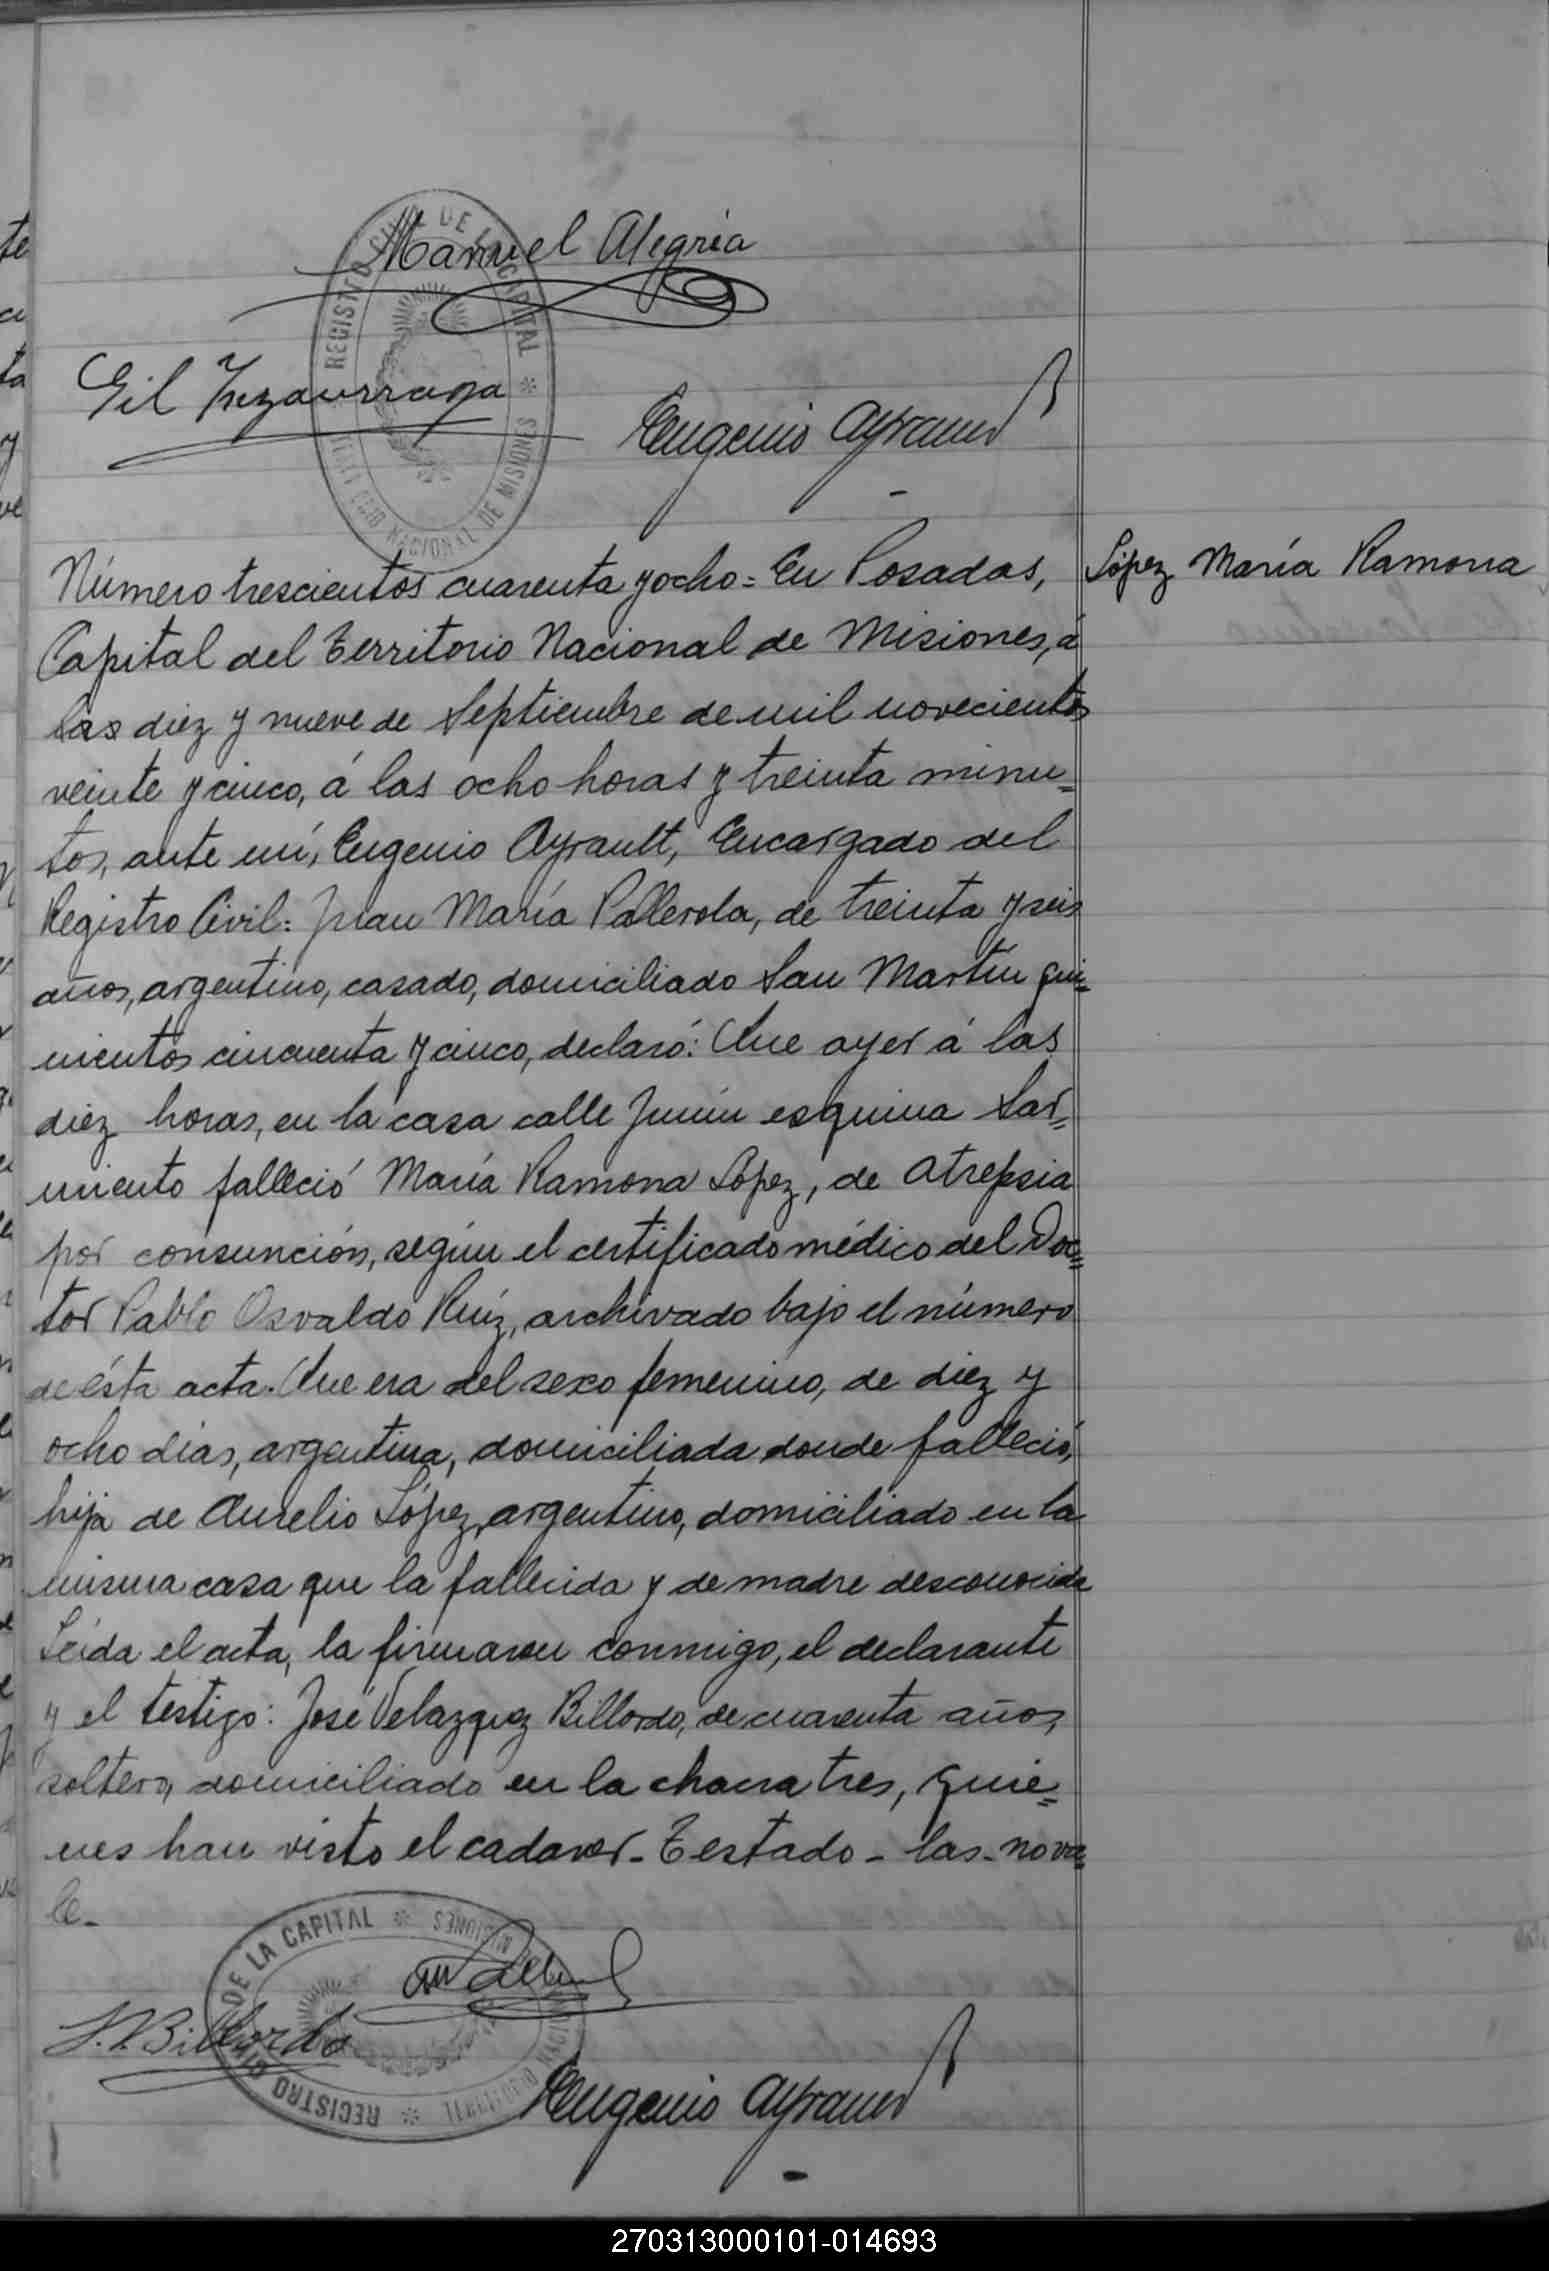 Manuel Alegría
Gil Yrezaurraga
Eugenio Ayrault
REGISTRO CIVIL DE LA CAPITAL * TERRITORIO NACIONAL DE MISIONES
López María Ramona
Número trescientos cuarenta y ocho = En Posadas,
Capital del Territorio Nacional de Misiones, á
las diez y nueve de Septiembre de mil novecientos
veinte y cinco, á las ocho horas y treinta minu=
tos, ante mí, Eugenio Ayrault, Encargado del
Registro Civil: Juan María Pallerola, de treinta y seis
años, argentino, casado, domiciliado San Martín qui=
nientos cincuenta y cinco, declaró: Que ayer á las
diez horas, en la casa calle Junín esquina Sar=
miento falleció María Ramona López, de atrepsia
por consunción, según el certificado médico del Doc=
tor Pablo Osvaldo Ruíz, archivado bajo el número
de ésta acta. Que era del sexo femenino, de diez y
ocho días, argentina, domiciliada donde falleció,
hija de Aurelio López, argentino, domiciliado en la
misma casa que la fallecida y de madre desconocida
Leída el acta, la firmaron conmigo, el declarante
y el testigo: José Velazquez Billordo, de cuarenta años,
soltero, domiciliado en la chacra tres, quie=
nes han visto el cadaver - Testado - las - no va=
le -
J. V. Billordo
Eugenio Ayrault
REGISTRO CIVIL DE LA CAPITAL * TERRITORIO NACIONAL DE MISIONES *
270313000101-014693